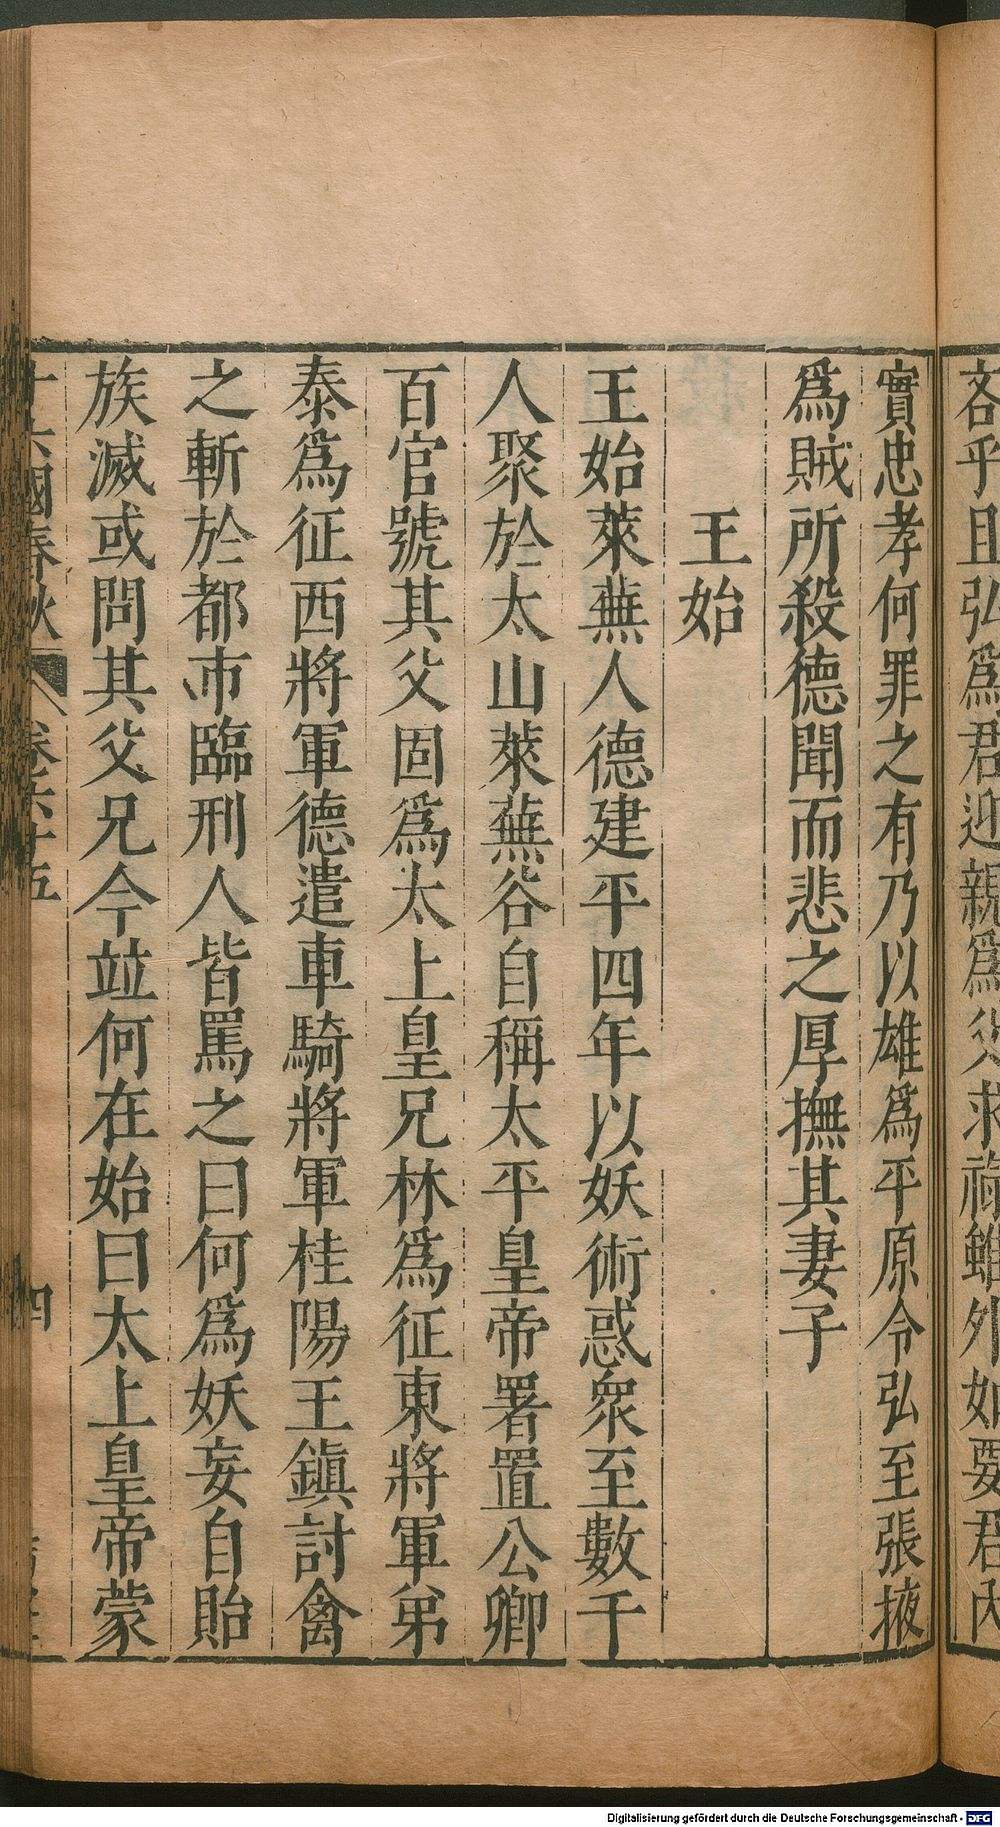 吝乎且弘爲君迎親爲父求祿雖外如要君內
實忠孝何罪之有乃以雄爲平原令弘至張掖
爲賊所殺德聞而悲之厚撫其妻子
王始
王始萊蕪人德建平四年以妖術惑衆至數千
人聚於太山萊蕪谷自稱太平皇帝署置公卿
百官號其父固爲太上皇兄林爲征東將軍弟
泰爲征西將軍德遣車騎將軍桂陽王鎭討禽
之斬於都市臨刑人皆罵之曰何爲妖妄自貽
族滅或問其父兄今竝何在始曰太上皇帝蒙
十六國春秋 卷六十五 四
Digitalisierung gefördert durch die Deutsche Forschungsgemeinschaft - DFG